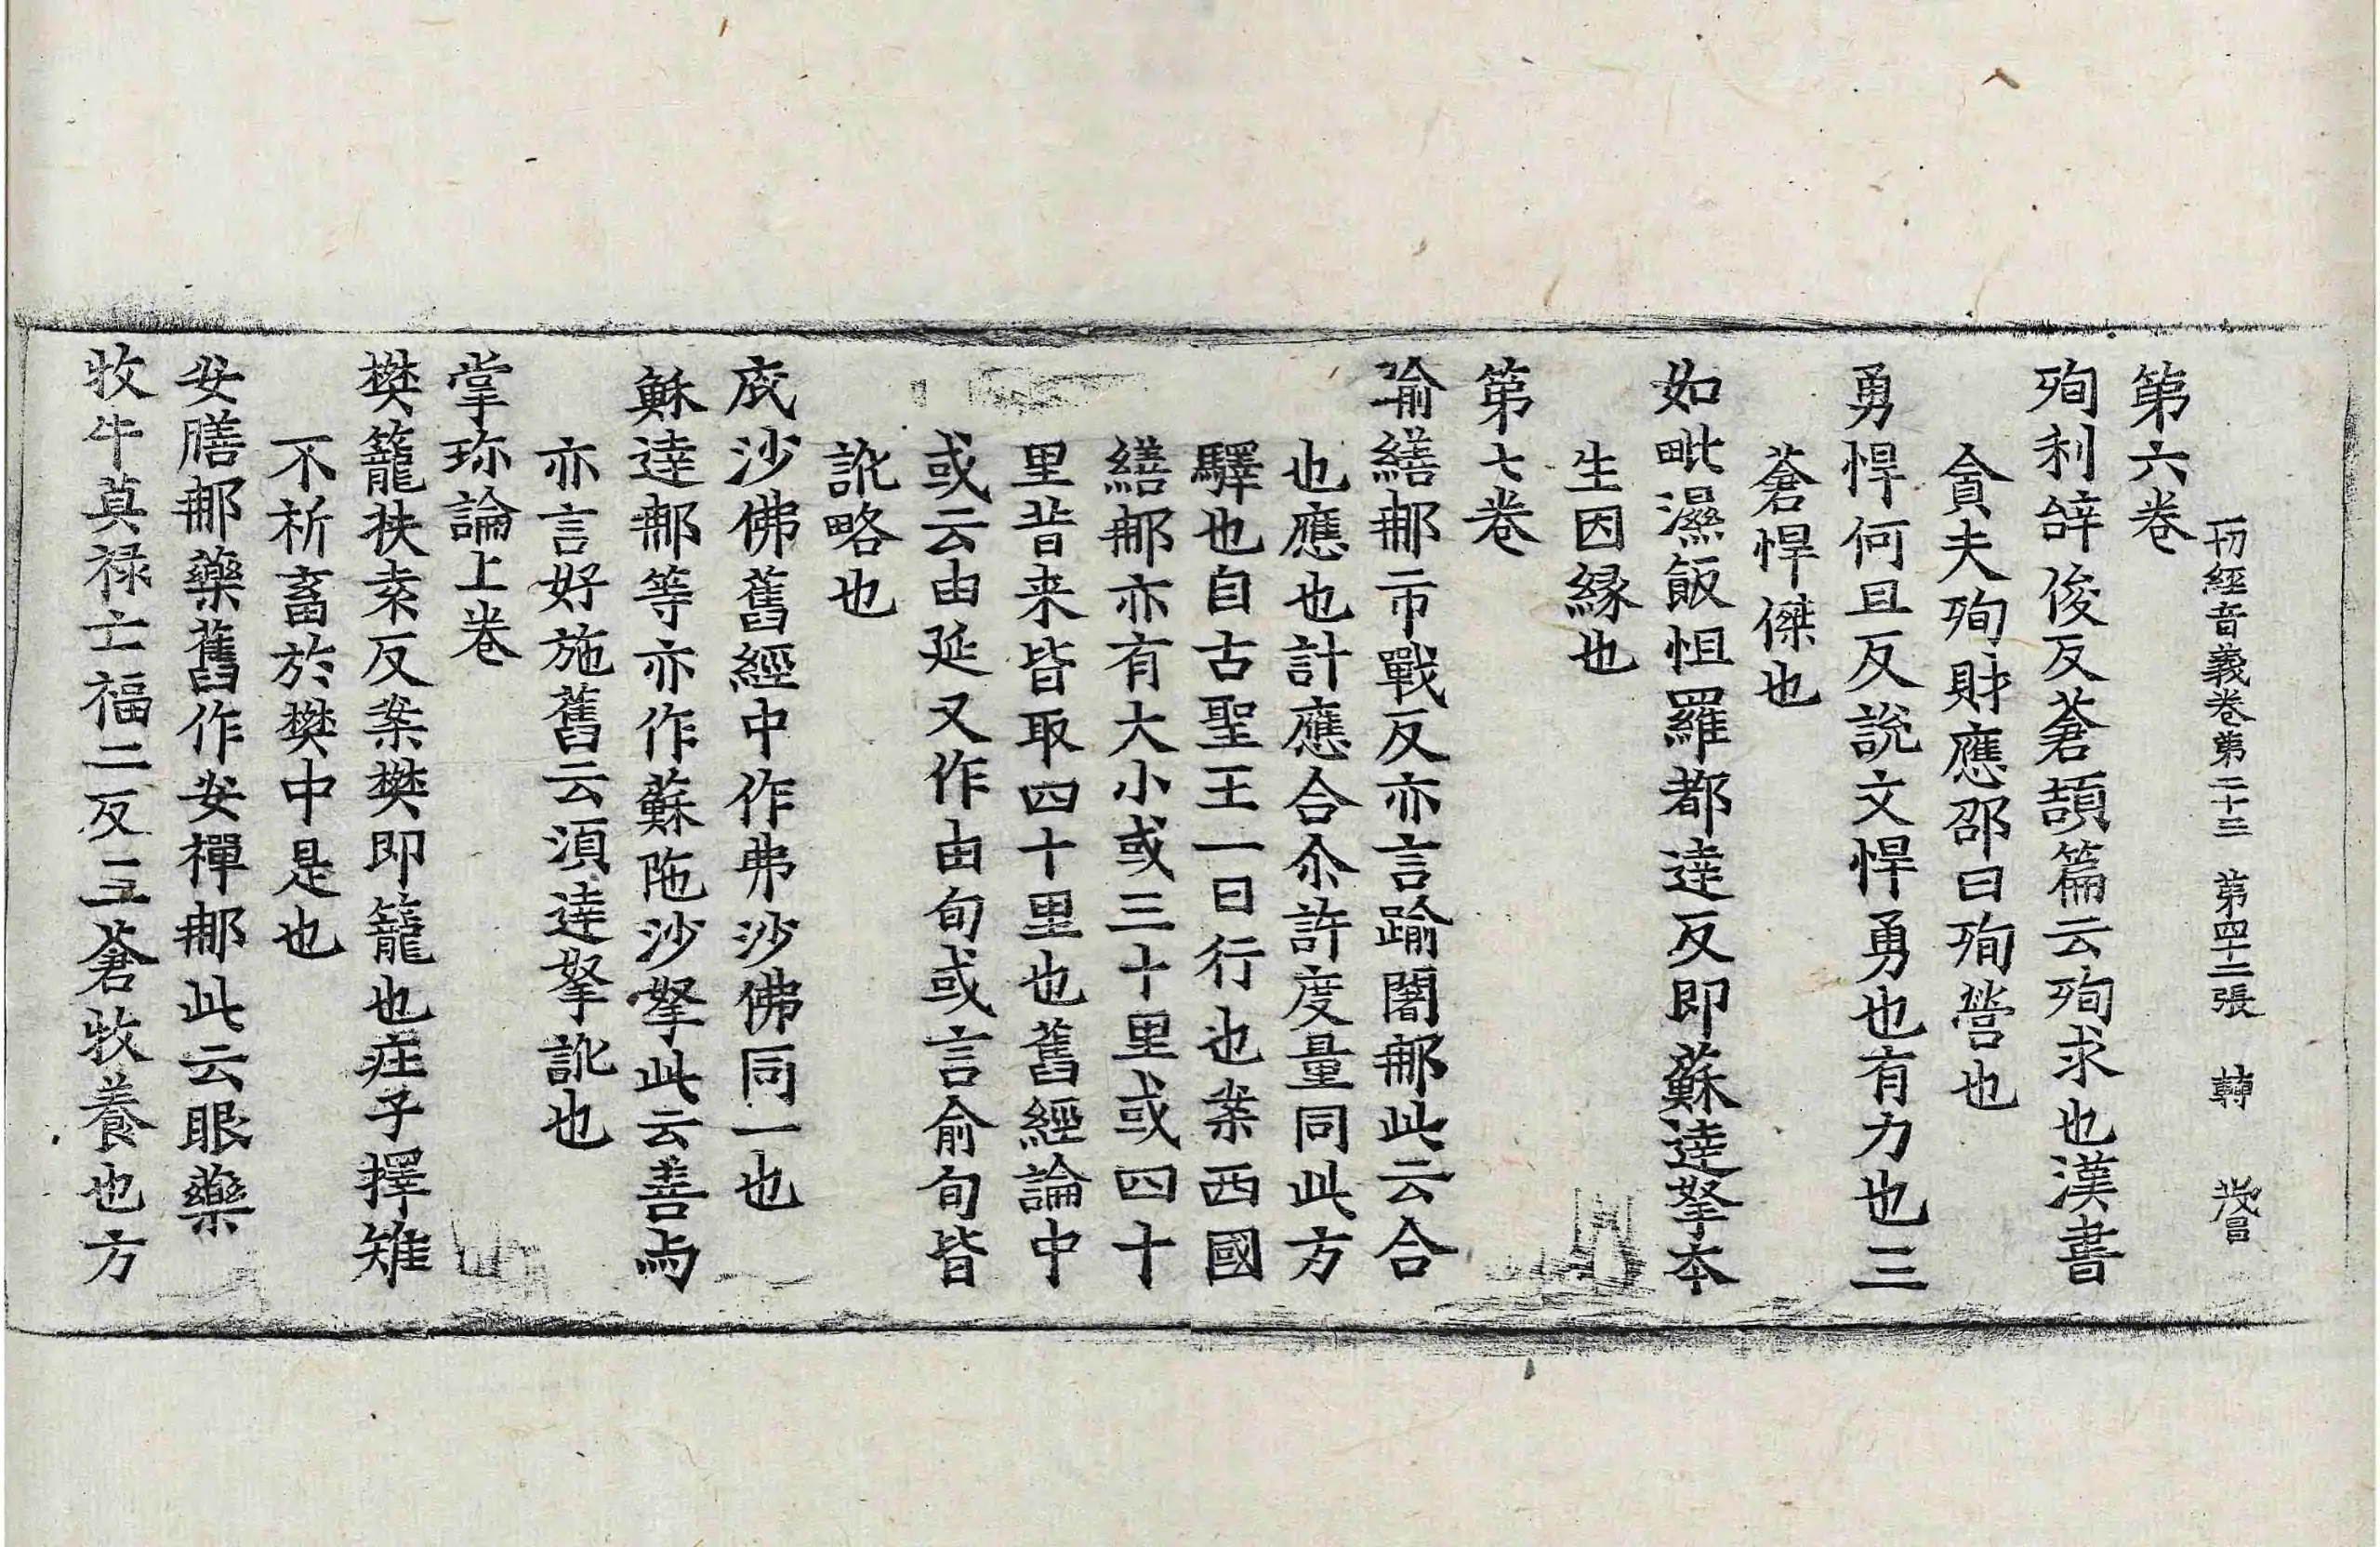 一切經音義卷第二十三 第四十二張 轉
第六卷
殉利辝俊反蒼頡篇云殉求也漢書
貪夫殉財應邵曰殉營也
勇悍何旦反說文悍勇也有力也三
蒼悍傑也
如毗濕飯怛羅都達反即蘇達拏本
生因縁也
第七卷
踰繕那市戰反亦言踰闍那此云合
也應也計應合尒許度量同此方
驛也自古聖王一日行也案西國
繕那亦有大小或三十里或四十
里昔来皆取四十里也舊經論中
或云由延又作由旬或言俞旬皆
訛略也
底沙佛舊經中作弗沙佛同一也
穌達那等亦作蘇陁沙拏此云善與
亦言好施舊云湏達拏訛也
掌珎論上卷
樊籠扶袁反案樊即籠也莊子擇雉
不祈畜於樊中是也
安膳那藥舊作安禪那此云眼藥
牧牛莫禄亡福二反三蒼牧養也方